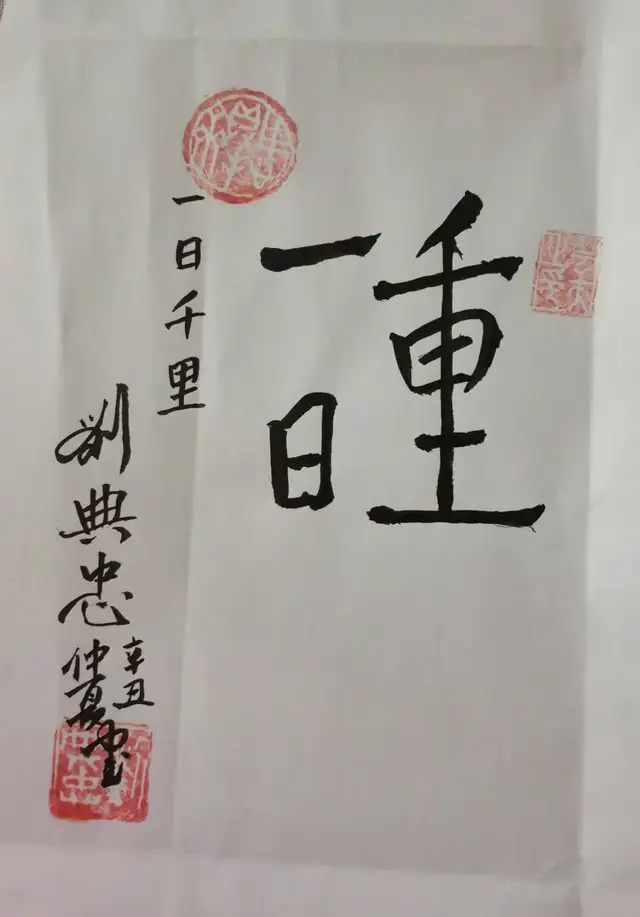 一日千里
一日千里
刘典忠
辛丑
仲夏书